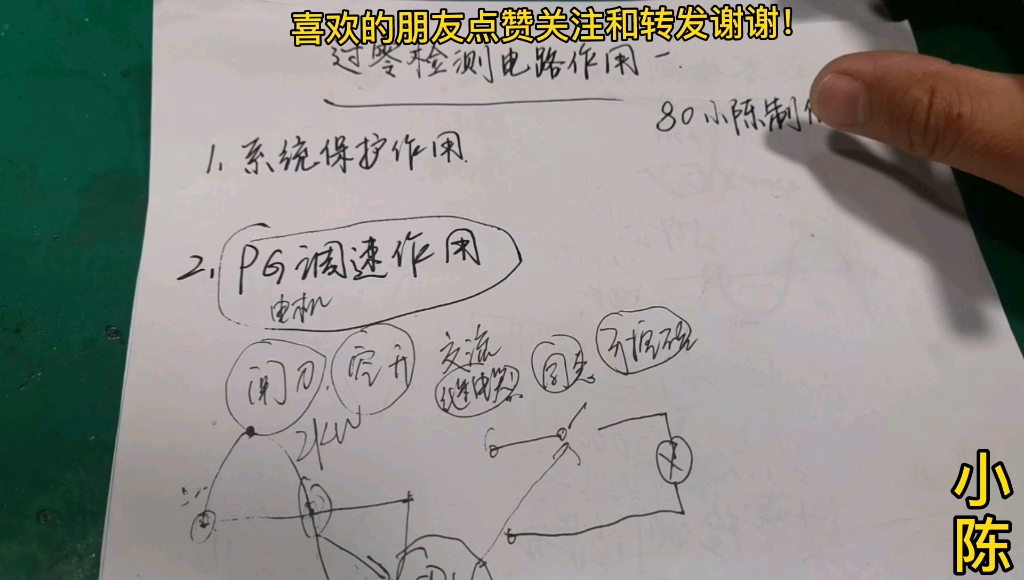 喜欢的朋友点赞关注和转发谢谢!
过零检测电路作用一.
80小陈制作
1、系统保护作用.
2、PG调速作用
电机
闸刀、空开
交流
继电器
固态
可控硅
2KW
小
陈